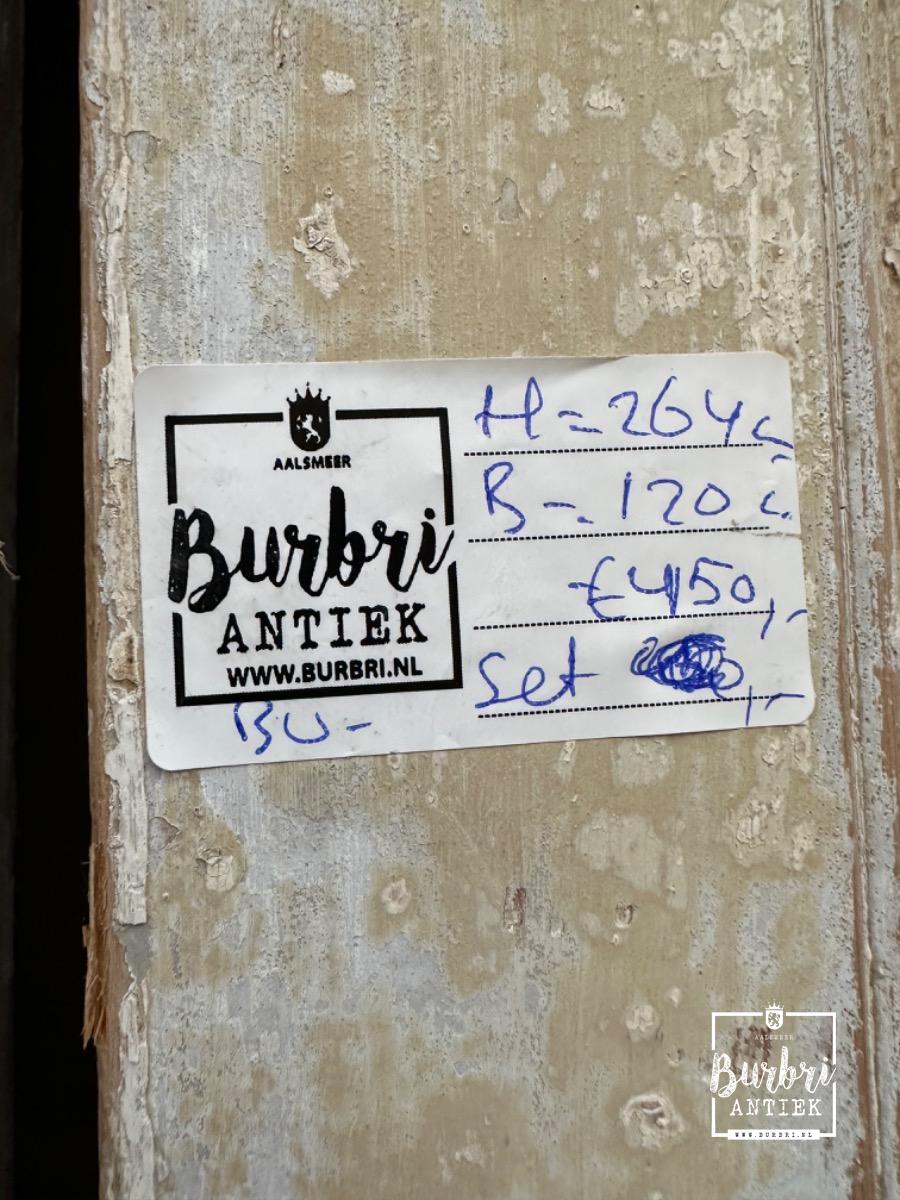 AALSMEER
Burbri
ANTIEK
WWW.BURBRI.NL
BU-
H=264c
B=120c
€450,-
Set
AALSMEER
Burbri
ANTIEK
WWW.BURBRI.NL